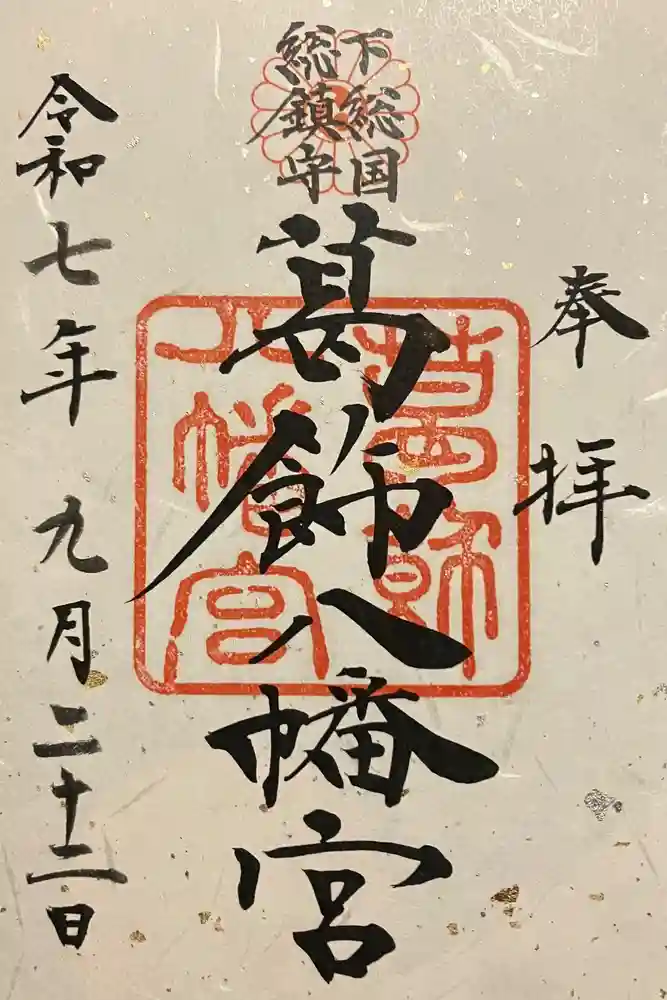 奉拝
下総国
総鎮守
葛飾八幡宮
葛飾
八幡宮
令和七年九月二十二日